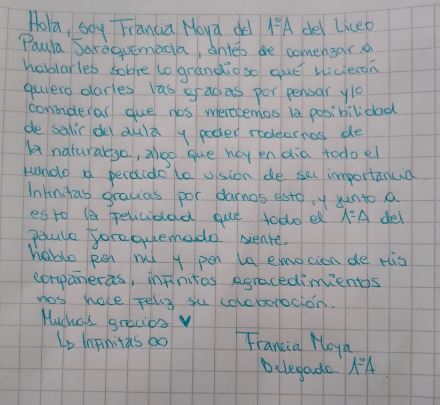 Hola, soy Francia Moya del 1°A del Liceo
Paula Jaraquemada, antes de comenzar a
hablarles sobre lo grandioso que hicieron
quiero darles las gracias por pensar y/o
considerar que nos merecemos la posibilidad
de salir del aula y poder rodearnos de
la naturaleza, algo que hoy en día todo el
mundo a perdido la visión de su importancia
Infinitas gracias por darnos esto, y junto a
esto la felicidad que todo el 1°A del
paula Jaraquemada siente.
hablo por mi y por la emoción de mis
compañeras, infinitos agracedimientos
nos hace feliz su colaboración.
Muchas gracias ♥
↳ Infinitas ∞
Francia Moya
Delegada 1°A